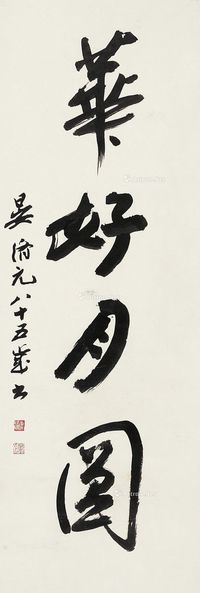 華好月圓
晏濟元八十五歲書